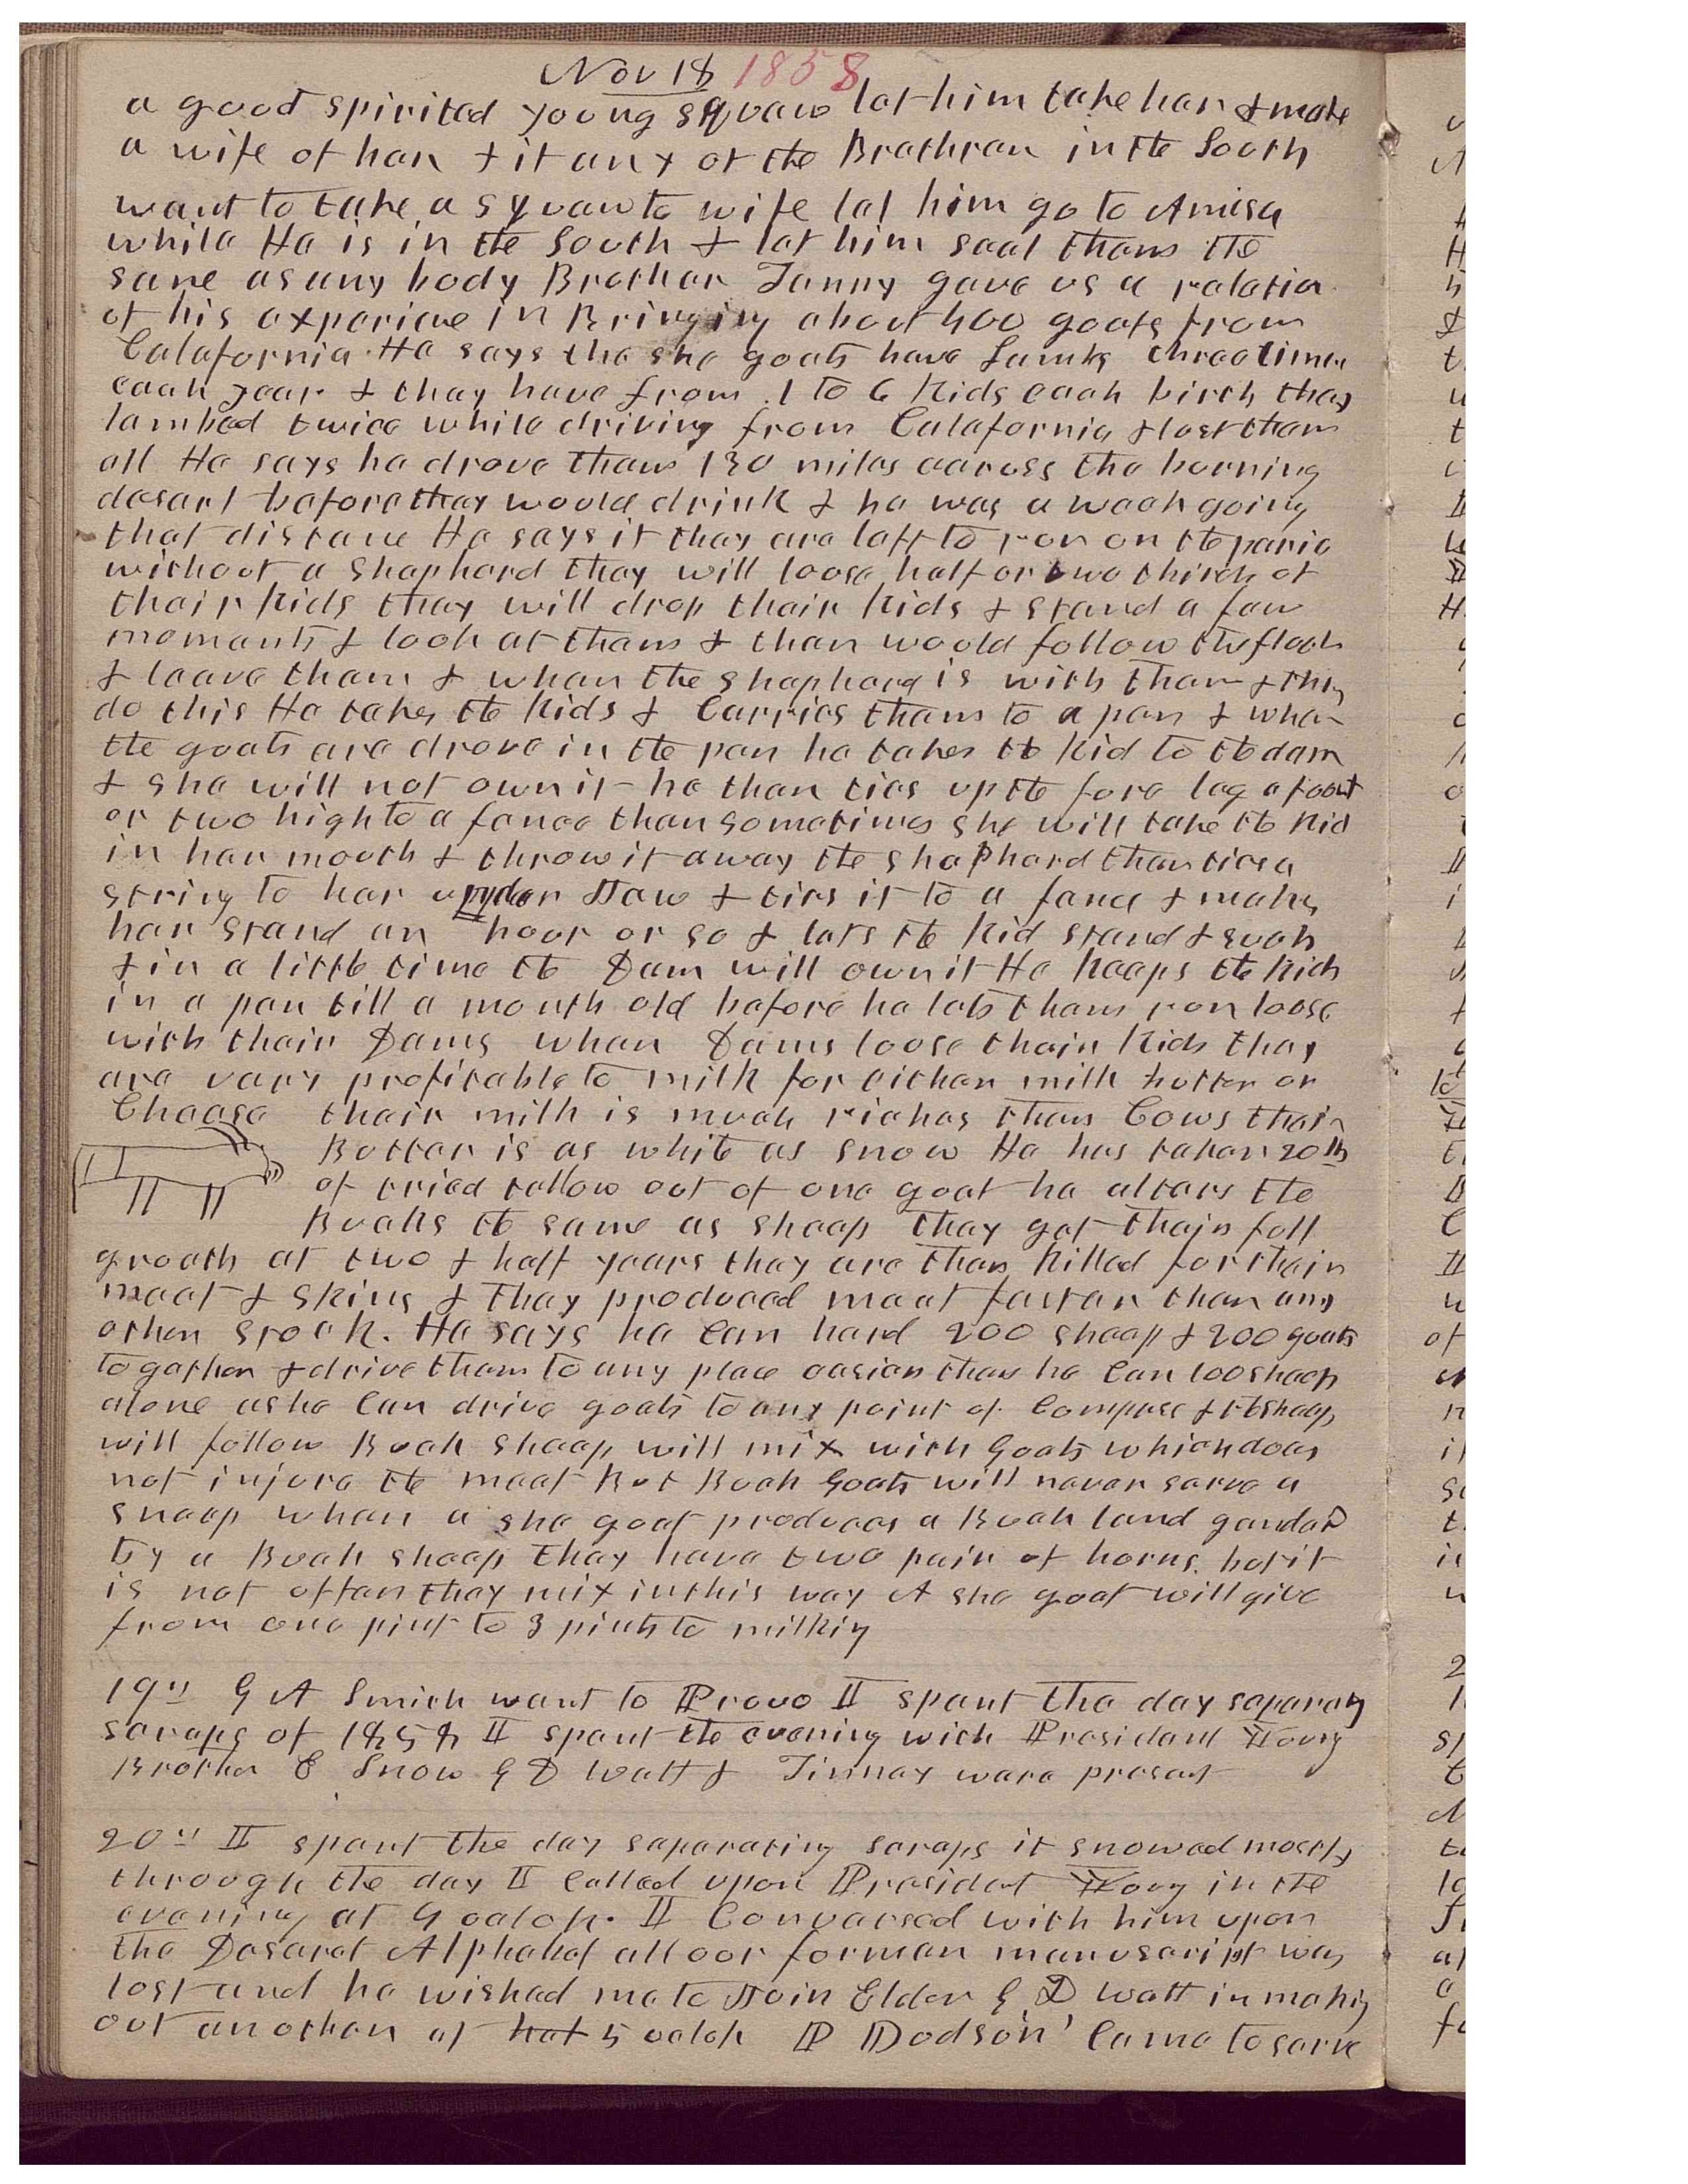 Nov 18 1858
a good spirited young squaw let him take her & make
a wife of her & if any of the Brethren in the South
want to take a squaw to wife let him go to Amisa
while He is in the South & let him seal them the
same as any body Brother Tenny gave us a relation
of his experiene in Bringing about 400 goats from
Calafornia. He says the she goats have Lambs three times
each year & they have from 1 to 6 Kids each birth they
lambed twice while driving from Calafornia & lost them
all He says he drove them 130 miles across the burning
desart before they would drink & he was a week going
that distane He says if they are left to run on the parie
without a Shepherd they will loose half or two thirds of
their Kids they will drop their Kids & stand a few
moments & look at them & then would follow the flock
& leave them & when the shepherd is with them & they
do this He takes the Kids & Carries them to a pen & when
the goats are drove in the pen he takes the Kid to the dam
& she will not own it he then ties up the fore leg a foot
or two high to a fence then sometimes she will take the Kid
in her mouth & throw it away the shepherd then ties a
string to her under Jaw & ties it to a fence & makes
her stand an hour or so & lets the Kid stand & suck
& in a little time the Dam will own it He Keeps the Kids
in a pen till a month old before he lets them run loose
with their Dams when Dams loose their Kids they
are very profitable to milk for either milk butter or
Cheese their milk is much richer than Cows their
Butter is as white as snow He has taken 20 lb
of tried tallow out of one goat he alters the
Bucks the same as sheep they get their full
groath at two & half years they are then Killed for their
meat & skins & they produced meat faster than any
other stock. He says he Can herd 200 sheep & 200 goats
together & drive them to any place easier than he Can 100 sheep
alone as he Can drive goats to any point of Compass & the sheep
will follow Buck sheep will mix with Goats which does
not injure the meat But Buck Goats will never serve a
sheep when a she goat produces a Buck land gendard
by a Buck sheep they have two pair of horns. but it
is not often they mix in this way A she goat will give
from one pint to 3 pints to milkig
19" G A Smith went to Provo I spent the day separatig
scraps of 1858 I spent the evening with President Young
Brother E Snow G D Watt & Tinney were present
20" I spent the day separating scraps it snowed mostly
through the day I Called upon President Young in the
evening at 4 oclok. I Conversed with him upon
the Deseret Alphabet all our former manuscript was
lost and he wished me to Join Elder G D Watt in makig
out another at hat 5 oclok P Dodson Came to serve